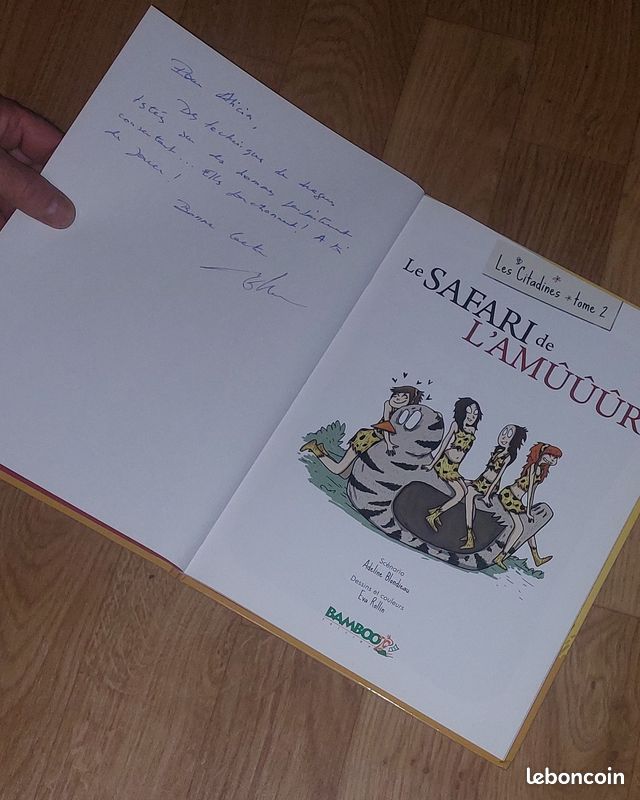 Pour Alicia,
Des techniques de drague
testées sur des hommes parfaitement
consentants... Elles fonctionnent! A toi
de jouer!
Bonne lecture
Les Citadines * tome 2
Le SAFARI de
L'AMÛÛÛR
Scénario
Adeline Blondieau
Dessins et couleurs
Eva Rollin
BAMBOO
leboncoin